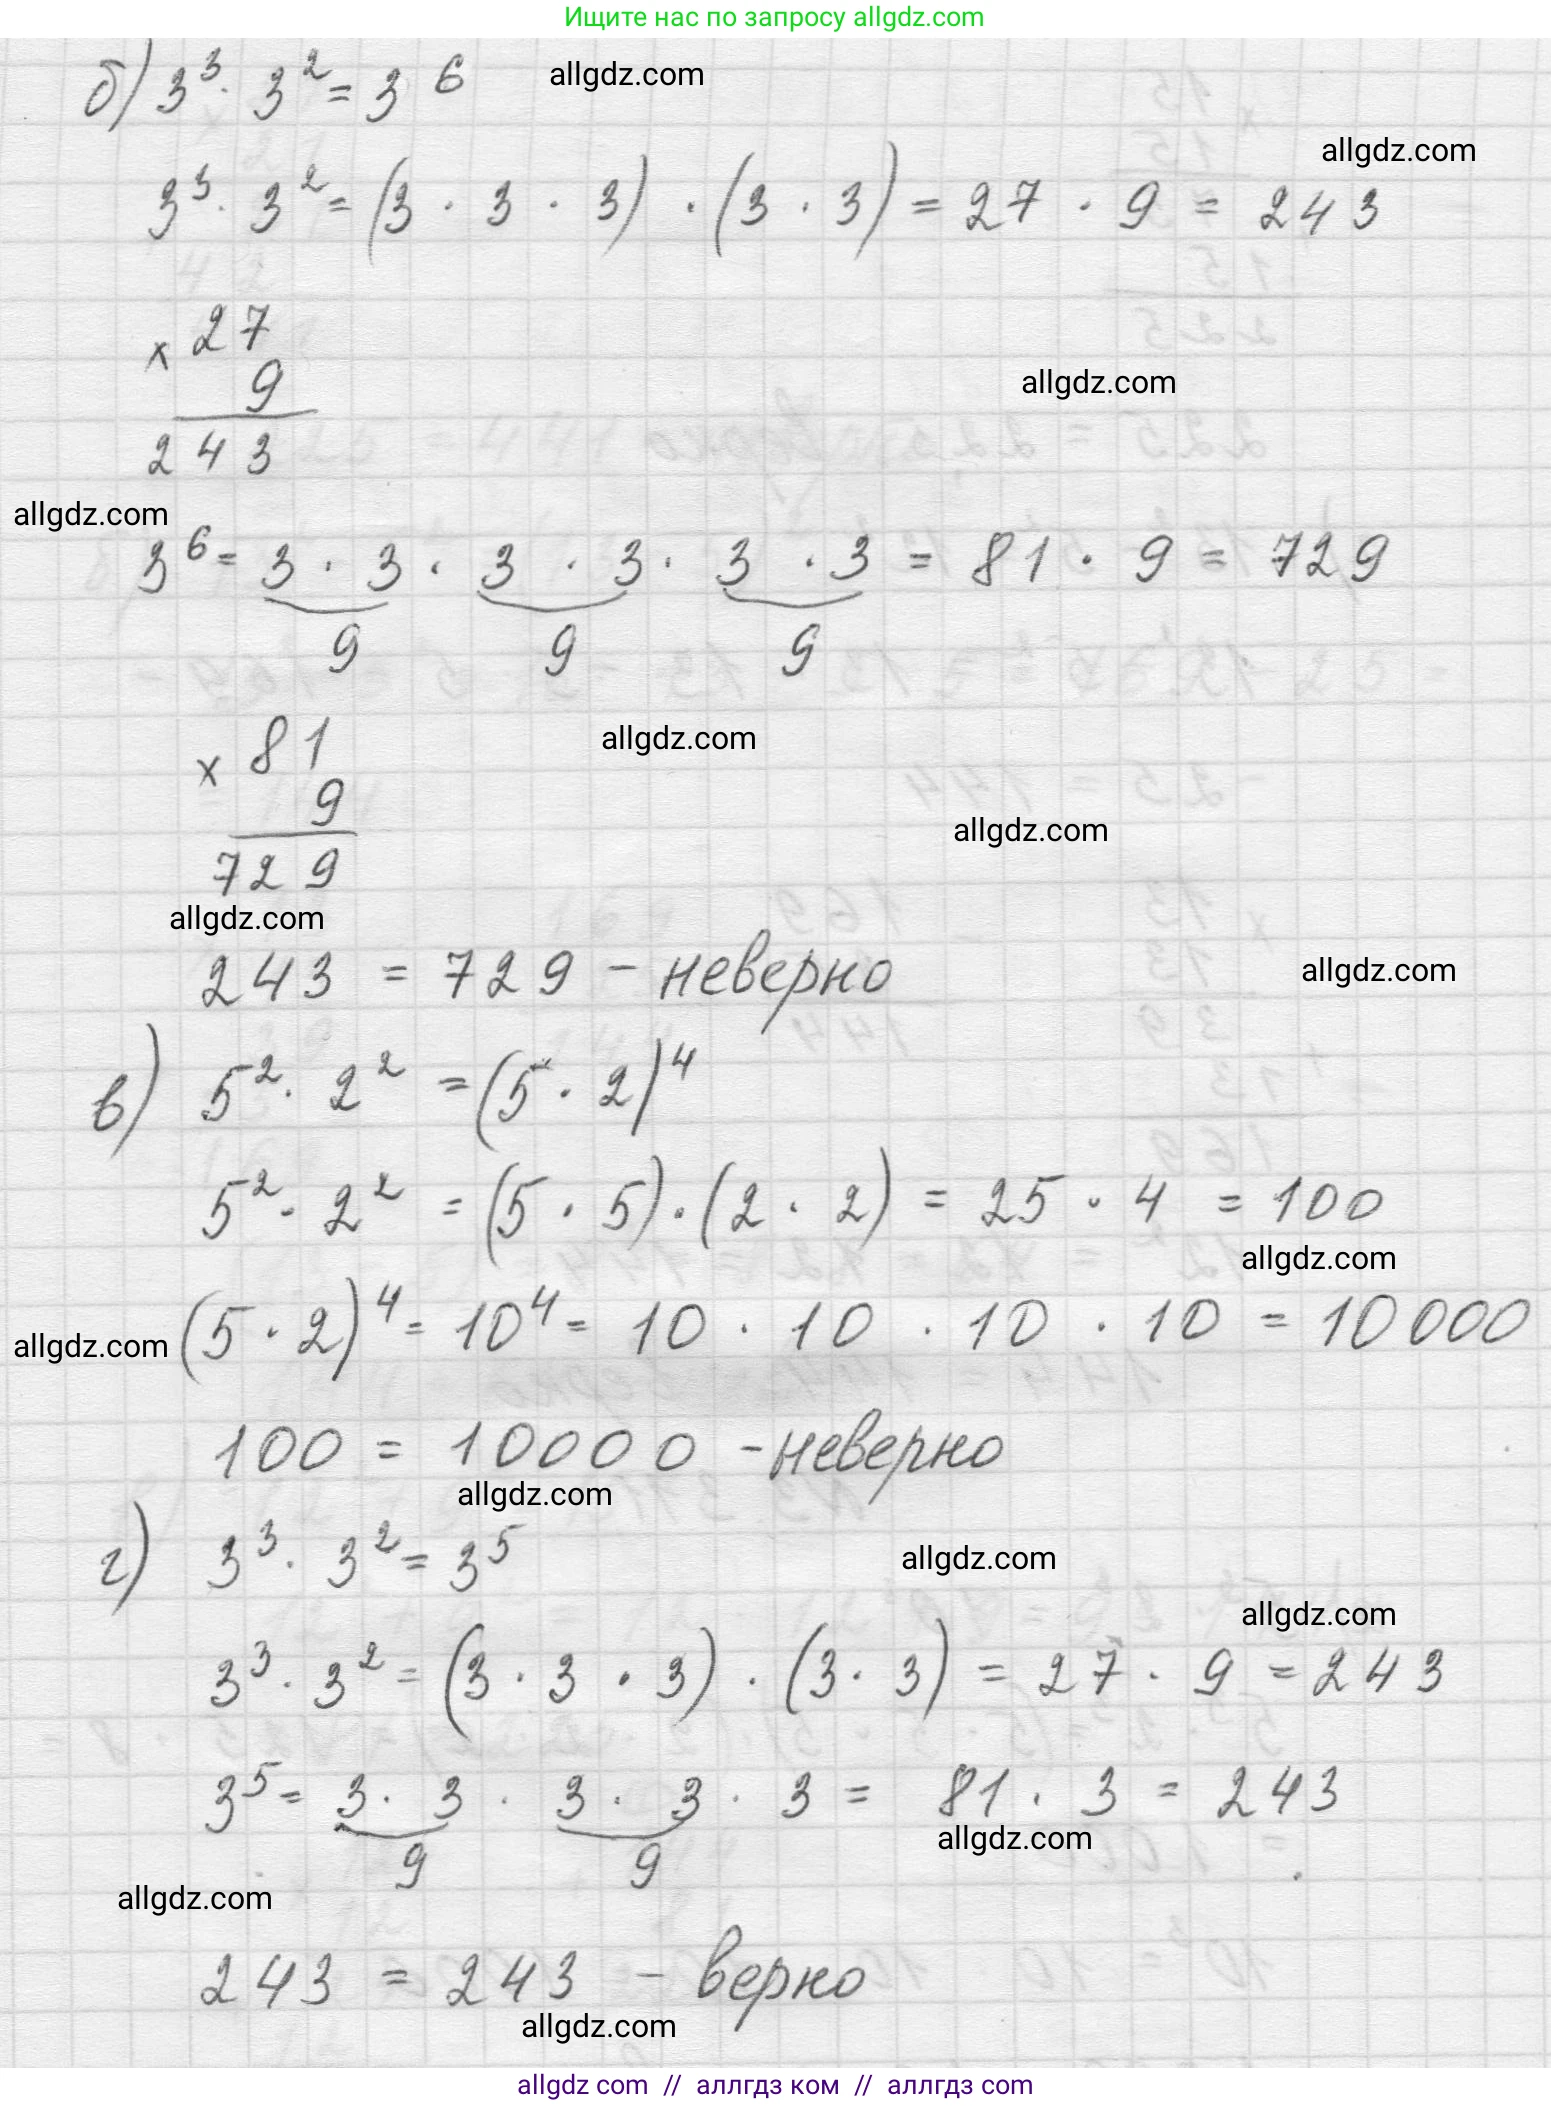 Ищите нас по запросу allgdz.com
б) 3³ · 3² = 3⁶
allgdz.com
allgdz.com
3³ · 3² = (3 · 3 · 3) · (3 · 3) = 27 · 9 = 243
× 27
9
243
allgdz.com
allgdz.com
3⁶ = 3 · 3 · 3 · 3 · 3 · 3 = 81 · 9 = 729
9 9 9
× 81
9
729
allgdz.com
allgdz.com
allgdz.com
243 = 729 - неверно
allgdz.com
в) 5² · 2² = (5 · 2)⁴
5² · 2² = (5 · 5) · (2 · 2) = 25 · 4 = 100
allgdz.com
allgdz.com
(5 · 2)⁴ = 10⁴ = 10 · 10 · 10 · 10 = 10000
100 = 10000 - неверно
allgdz.com
г) 3³ · 3² = 3⁵
allgdz.com
allgdz.com
3³ · 3² = (3 · 3 · 3) · (3 · 3) = 27 · 9 = 243
3⁵ = 3 · 3 · 3 · 3 · 3 = 81 · 3 = 243
9 9
allgdz.com
allgdz.com
243 = 243 - верно
allgdz.com
allgdz com // аллгдз ком // аллгдз com